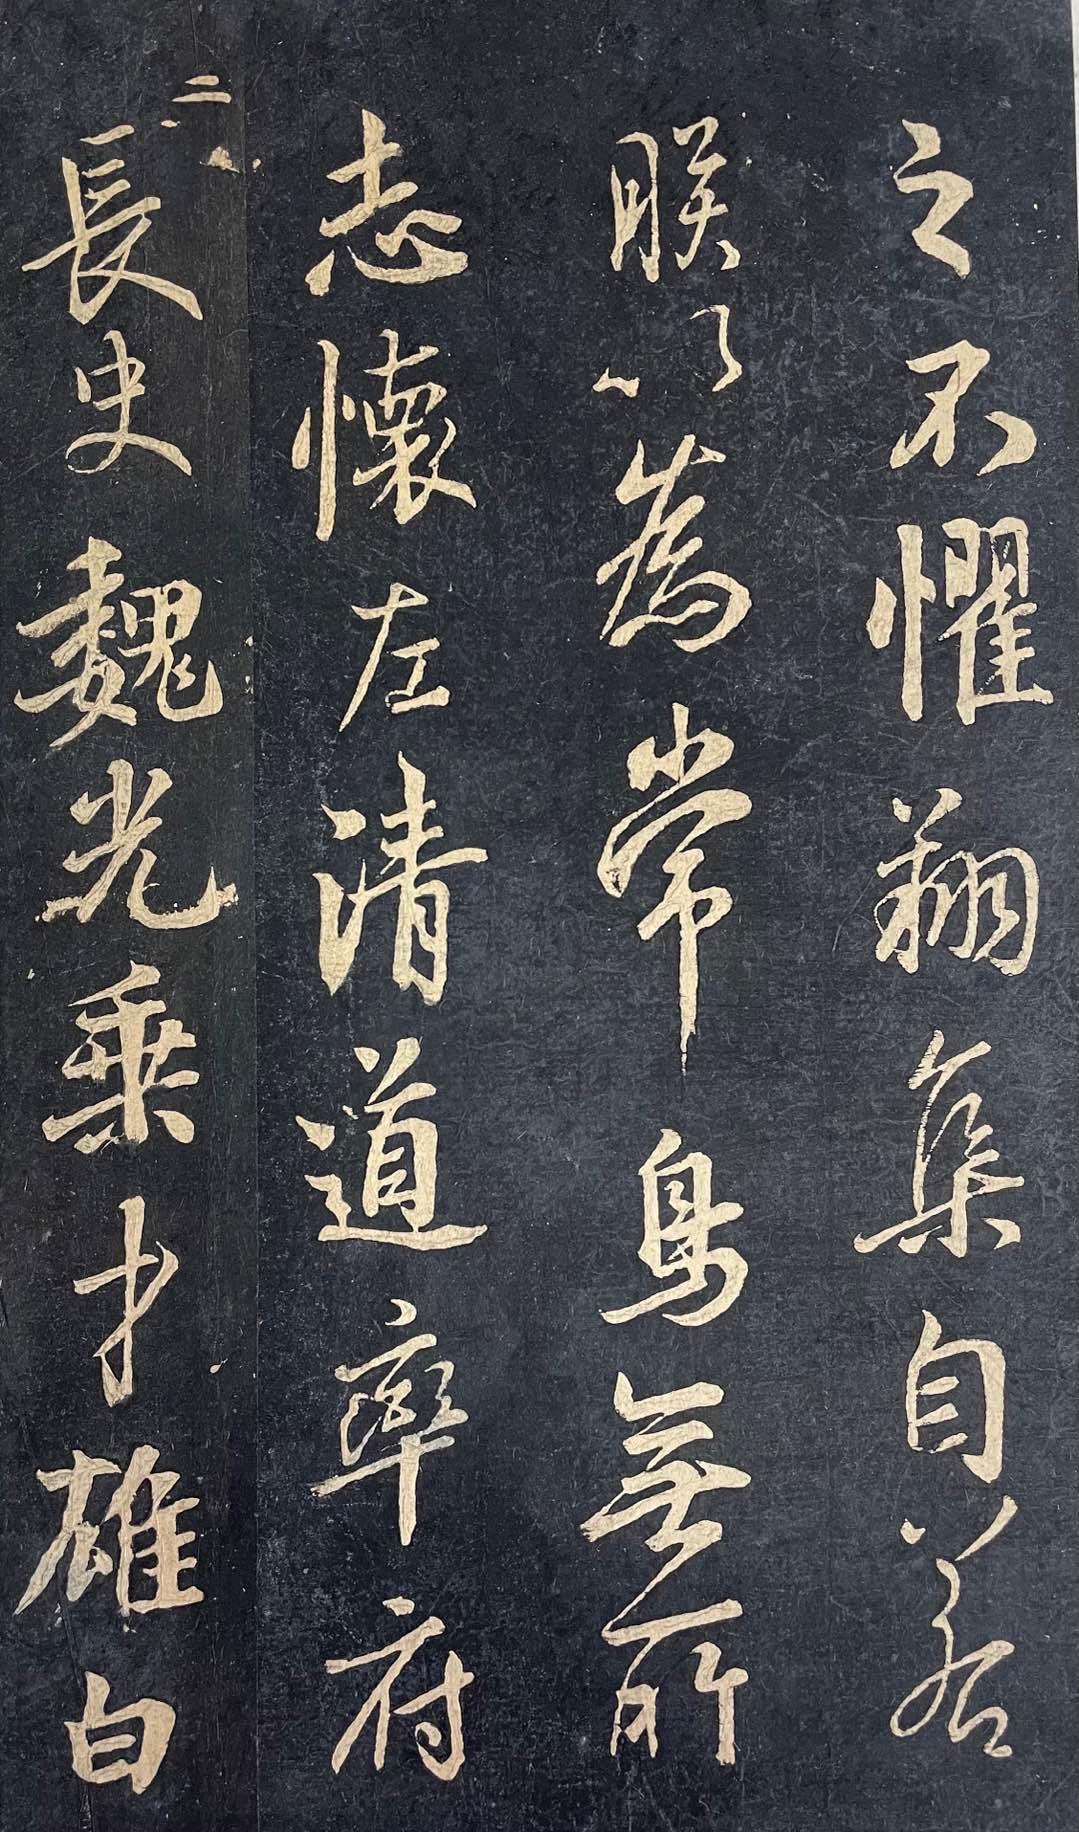 之不懼翔集自若
朕以為常鳥無所
志懷左清道率府
長史魏光乗才雄白
二